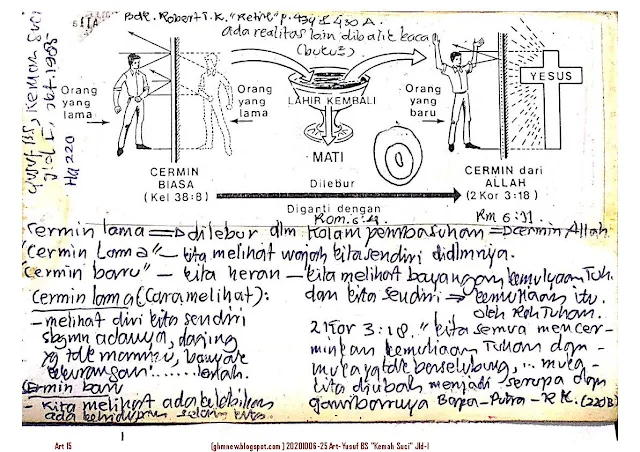 Bdk. Robert T.K. "Retret" p. 434 & 430 A.
ada realitas lain dibalik kaca
Orang yang lama
Orang yang lama
LAHIR KEMBALI
MATI
Orang yang baru
YESUS
CERMIN BIASA
(Kel 38:8)
Dilebur
Diganti dengan
CERMIN dari ALLAH
(2 Kor 3:18)
Rom. 6:4
Rm 6:31
Cermin lama => dilebur dlm Kolam pembasuhan => Cermin Allah
"Cermin Lama" – kita melihat wajah kita sendiri didlmnya.
"Cermin baru" – kita heran – kita melihat bayangan kemulyaan Tuh.
dan kita sendiri => kemuliaan itu.
oleh Roh Tuhan.
Cermin lama (Cara melihat):
- melihat diri kita sendiri
sbgmn adanya, daging
yg tdk mampu, banyak
kekurangan ...... lemah.
Cermin baru
- Kita melihat ada kelebihan
ada kehidupan selain kita.
2 Kor 3:18. "kita semua mencer-
minkan kemuliaan Tuhan dgn
muka yg tdk berselubung, ... maka
kita diubah menjadi serupa dgn
gambarnya Bapa - Putra - R.K. (220B)
Ha 220
Art 15
[ghmnew.blogspot.com] 20201006-25 Art-Yusuf BS "Kemah Suci" Jld-I